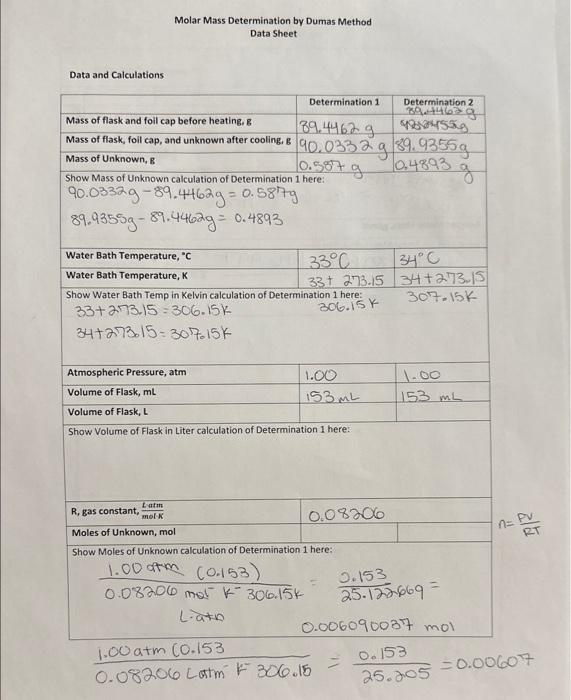 Molar Mass Determination by Dumas Method
Data Sheet
Data and Calculations
Determination 1 Determination 2
89.4462 g
Mass of flask and foil cap before heating, g 89.4462 g
Mass of flask, foil cap, and unknown after cooling, g 90.0332 g 89.9355g
Mass of Unknown, g 0.587 g 0.4893 g
Show Mass of Unknown calculation of Determination 1 here:
90.0332g - 89.4462g = 0.587g
89.9355g - 89.4462g = 0.4893
Water Bath Temperature, °C 33°C 34°C
Water Bath Temperature, K 33+ 273.15 34+273.15
Show Water Bath Temp in Kelvin calculation of Determination 1 here: 306.15K 307.15K
33+273.15 = 306.15K
34+273.15 = 307.15K
Atmospheric Pressure, atm 1.00 1.00
Volume of Flask, mL 153 mL 153 mL
Volume of Flask, L
Show Volume of Flask in Liter calculation of Determination 1 here:
R, gas constant, L·atm / mol·K 0.08206
n= PV / RT
Moles of Unknown, mol
Show Moles of Unknown calculation of Determination 1 here:
1.00 atm (0.153) = 0.153 =
0.08206 mol K 306.15K 25.122669
L·atm 0.006090037 mol
1.00 atm (0.153 = 0.153 = 0.00607
0.08206 Latm K 306.15 25.205